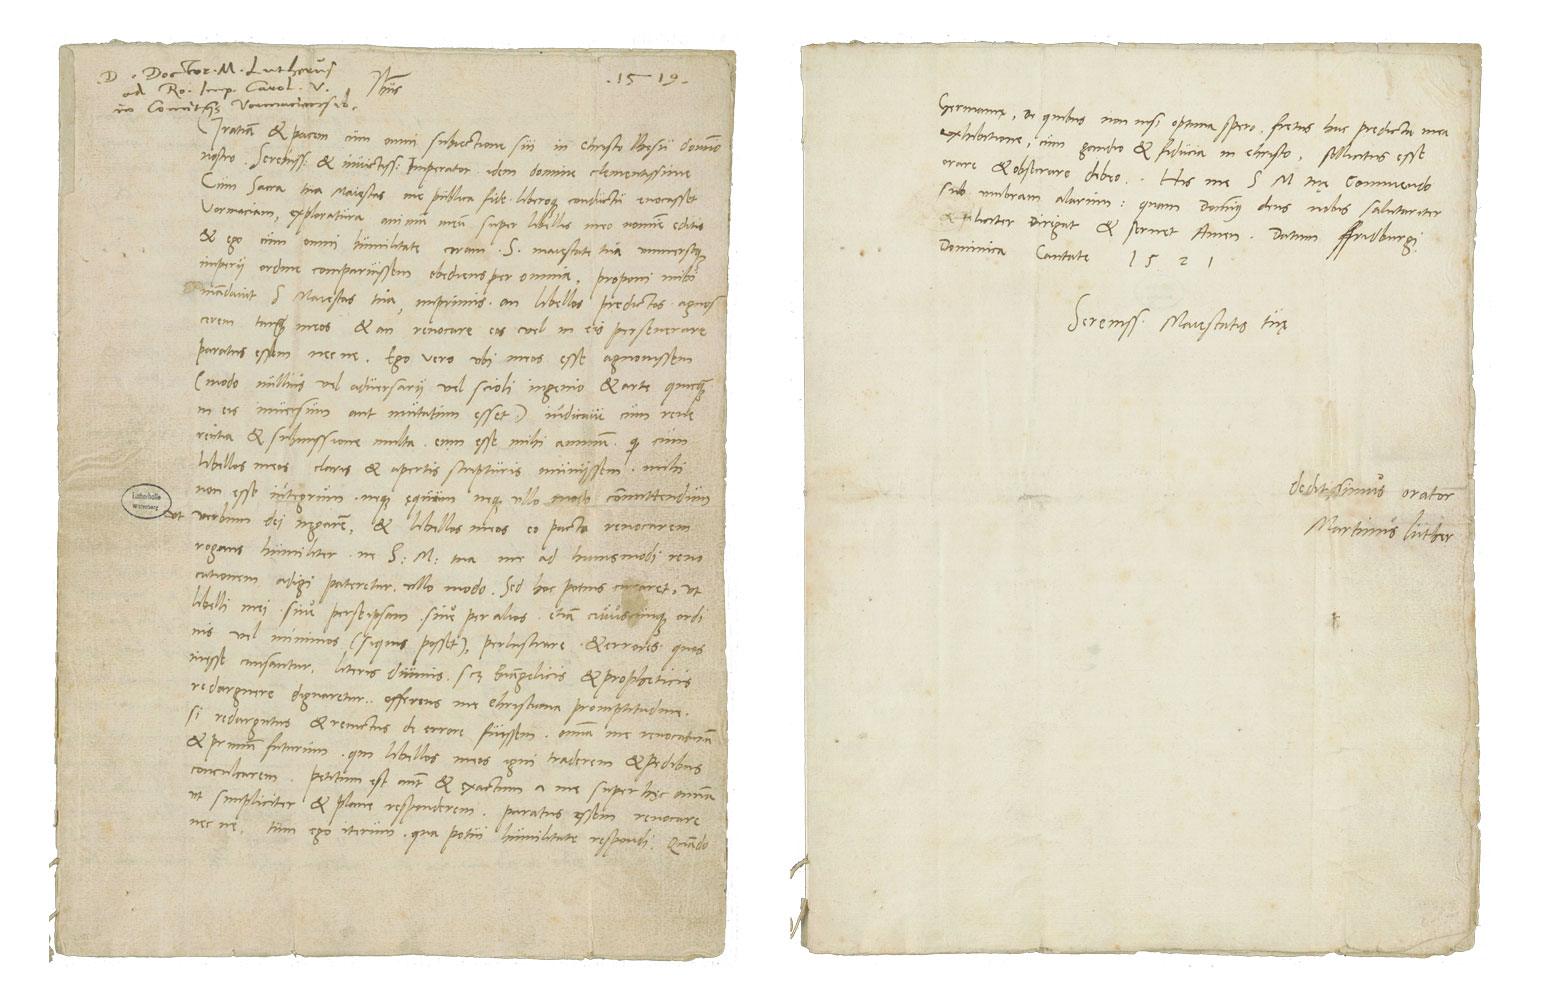 D. Doctor. M. Lutherus
ad Ro. Imp. Carol. V.
in Comitijs Vormaciensib.
Ihus
.1519.
Gratiā & pacem cū omni subiectione sui in christo Ihesu domīo
nostro. Sereniss. & inuictiss. Imperator. idem domine clementissime
Cum Sacra tua Maiestas me publica fide liberoq conductu euocasset
Vormaciam, exploratura animū meū super libellis meo nomīe editis
& ego cum omni humilitate coram .S. maiestate tua uniuersoq
imperij ordine comparuissem obediens per omnia, proponi mihi
mādauit S Maiestas tua, imprimis. an libellos predictos agnos
cerem tanq meos & an reuocare eos vel in eis perseuerare
paratus essem nec ne. Ego vero ubi meos esse agnouissem
(modo nullius vel aduersarij vel scioli ingenio & arte quicq
in eis inuersum aut mutatum esset) indicaui cum reue
rētia & submissione multa. eum esse mihi animū. q cum
libellos meos claris & apertis scripturis muniissem. mihi
non esse integrum. neq equum neq ullo modo cōmittendum
ut verbum dei negarē, & libellos meos eo pacto reuocarem
rogans humiliter. ne S: M: tua me ad huiusmodi reuo
cationem adigi pateretur. ullo modo. Sed hoc potius curaret, ut
libelli mei. siue perseipsam siue per alios. etiā cuiuscunq ordi
nis vel minimos (siquis posset), perlustrare. & errores quos
inesse causantur. literis diuinis. scz Euāgelicis & propheticis
redarguere dignaretur. offerens me christiana promptitudine.
si redargutus & reuictus de errore fuissem. omnia me reuocaturū
& primū futurum. qui libellos meos igni traderem & pedibus
conculcarem. petitum est aut & exactum a me super hec omnia
ut simpliciter & plane responderem. paratus essem reuocare
nec ne. tum ego iterum. qua potui humilitate respondi. Quādo
Lutherhalle
Wittenberg
Germanie, de quibus non nisi optima spero. fretus hac predicta mea
exhibitione, cum gaudio & fiducia in christo, sollicitus esse
orare & obsecrare debeo. His me S M tue Commendo
sub umbram alarum: quam Dominus deus nobis salutariter
& feliciter dirigat & seruet Amen. Datum Fridburgi
Dominica Cantate 1521
Sereniss. Maiestatis tue
deditissimus orator
Martinus Luther